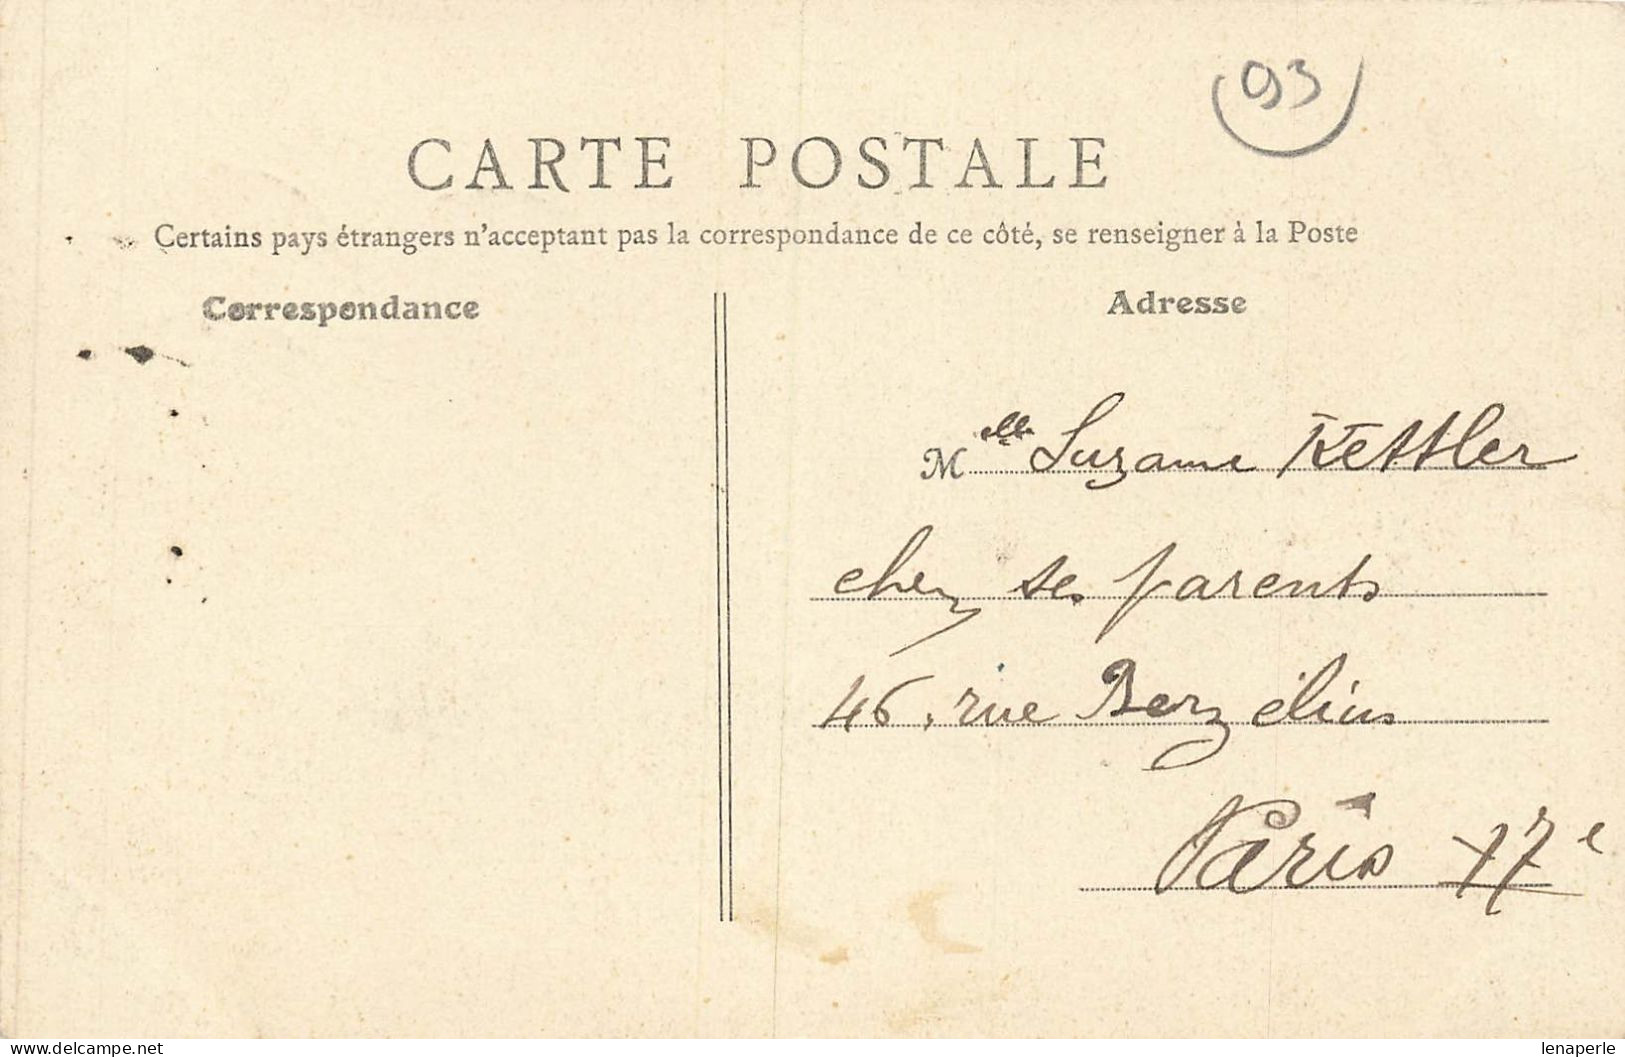 93
CARTE POSTALE
Certains pays étrangers n'acceptant pas la correspondance de ce côté, se renseigner à la Poste
Correspondance
Adresse
Melle Suzanne Kettler
chez ses parents
46, rue Berzélius
Paris 17e
www.delcampe.net
lenaperle